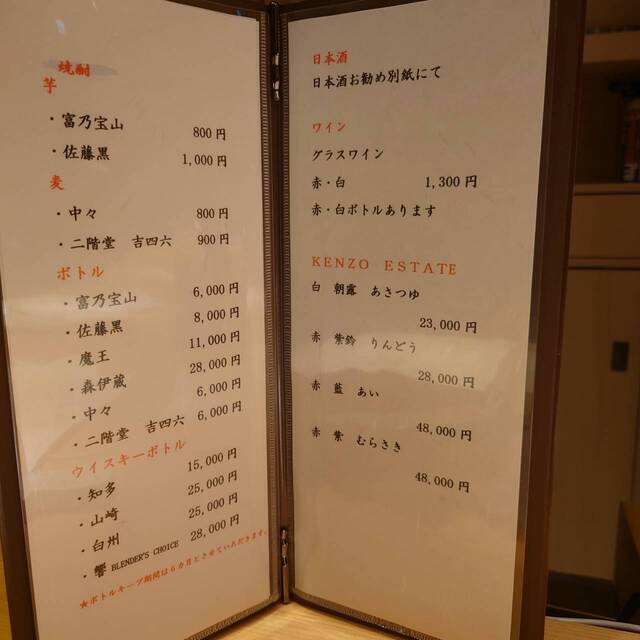 焼酎
芋
・富乃宝山 800円
・佐藤黒 1,000円
麦
・中々 800円
・二階堂 吉四六 900円
ボトル
・富乃宝山 6,000円
・佐藤黒 8,000円
・魔王 11,000円
・森伊蔵 28,000円
・中々 6,000円
・二階堂 吉四六 6,000円
ウイスキーボトル
・知多 15,000円
・山崎 25,000円
・白州 25,000円
・響 BLENDER'S CHOICE 28,000円
★ボトルキープ期間は6カ月とさせていただきます。
日本酒
日本酒お勧め別紙にて
ワイン
グラスワイン
赤・白 1,300円
赤・白ボトルあります
KENZO ESTATE
白 朝露 あさつゆ
23,000円
赤 紫鈴 りんどう
28,000円
赤 藍 あい
48,000円
赤 紫 むらさき
48,000円